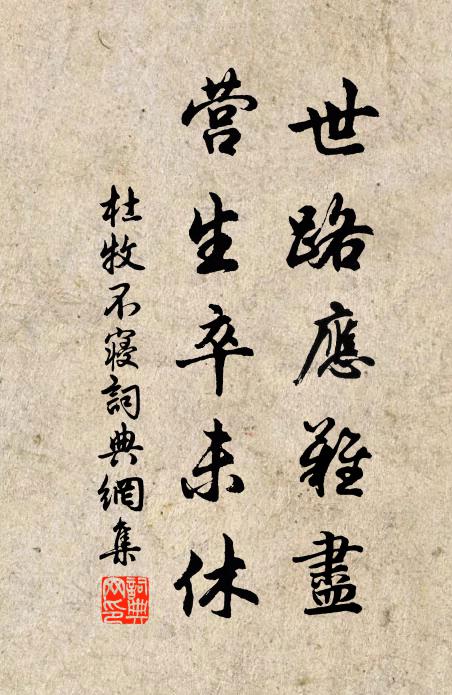 世路應難盡
营生卒未休
杜牧不寝詞典網集
詞典網印